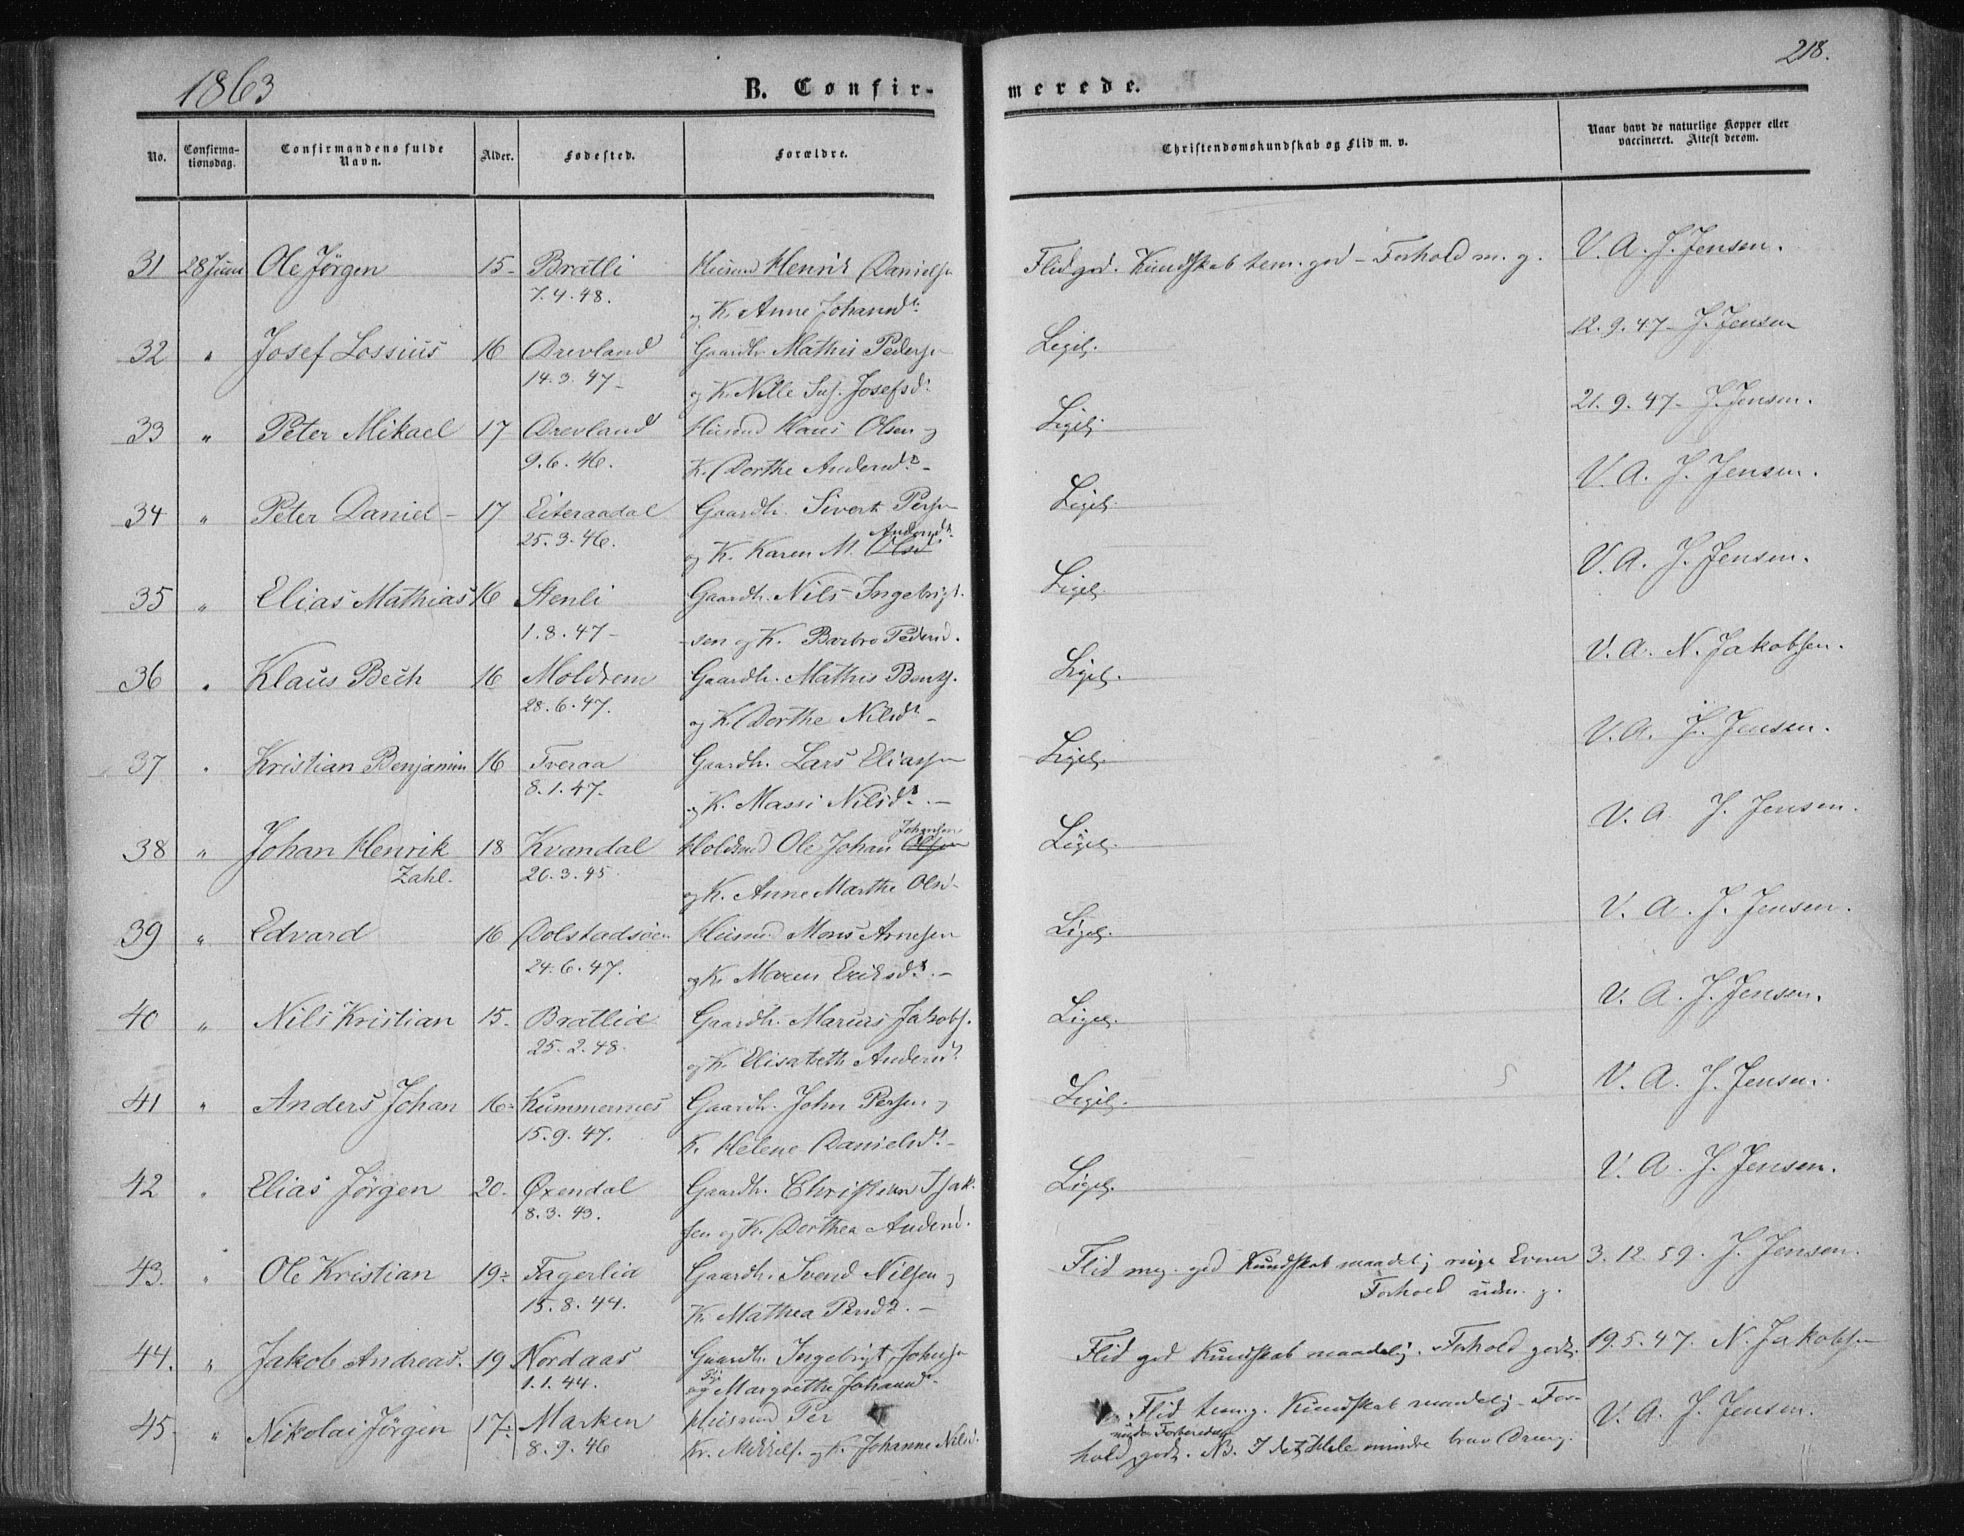 1863 B. Confir-
merede. 218.
No. Confirmationsdag. Confirmandens fulde Navn. Alder. Fødested. Forældre.
Christendomskundskab og Flid m. v. Naar havt de naturlige Kopper eller vaccineret. Attest derom.
31 28 Juni Ole Jørgen 15 - Bratli Husmd Henrik Danielsen Flid god. Kundskab tem. god - Forhold m. g. V. A. J. Jensen.
7.4.48. og K. Anne Johannd.
32 " Josef Lossius 16 Drevland Gaardb. Mathis Pedersen Ligel. 12.9.47 - J. Jensen
14.3.47 - og K. Nille Sus. Josefsd.
33 " Peter Mikael 17 Drevland Husmd Hans Olsen og Ligel. 21.9.47 - J. Jensen.
9.6.46. K. Dorthe Andersd. -
34 " Peter Daniel - 17 Eiteraadal Gaardb. Sivert Persen Ligel. V. A. J. Jensen.
25.3.46. og K. Karen M. Olsd Andersd.
35 " Elias Mathias 16 Stenli Gaardb. Nils Ingebrigt- Ligel. V. A. J. Jensen.
1.8.47 - sen og K. Barbro Pedersd.
36 " Klaus Bech 16 Moldrem Gaardb. Mathis Bents. Ligel. V. A. N. Jakobsen.
28.6.47. og K. Dorthe Nilsd. -
37 " Kristian Benjamin 16 Tveraa Gaardb. Lars Eliassen Ligel. V. A. J. Jensen.
8.1.47. og K. Massi Nilsd. -
38 " Johan Henrik 18 Kvandal Holdsmd Ole Johan Olsen Johansen Ligel. V. A. J. Jensen.
Zahl. 20.3.45. og K. Anne Marthe Olsd.
39 " Edvard 16 Dolstadsøen Husmd Mons Arnesen Ligel. V. A. J. Jensen.
24.6.47. og K. Maren Eriksd. -
40 " Nils Kristian 15 - Bratlid Gaardb. Marius Jakobs. Ligel. V. A. J. Jensen.
25.2.48. og K. Elisabeth Andersd.
41 " Anders Johan 16 - Kummernes Gaardb. John Persen og Ligel. V. A. J. Jensen.
15.9.47. K. Helene Danielsd. -
42 " Elias Jørgen 20 - Øxendal Gaardb. Christian Isak- Ligel. V. A. J. Jensen.
8.3.43. sen og K. Dorthea Andersd.
43. " Ole Kristian 19 - Fagerlid Gaardb. Svend Nilsen og Flid meg. god Kundskab maadelig ringe Evner 3.12.59. J. Jensen.
15.8.44. K. Mathea Persd. - Forhold udm. g.
44. " Jakob Andreas. 19 Nordaas Gaardb. Ingebrigt Johnsen Flid god Kundskab maadelig. Forhold godt. 19.5.47. N. Jakobsen
1.1.44. og Margrethe Johannd.
45 - " Nikolai Jørgen 17 - Marken Husmd Per Flid tem. g. Kundskab maadelig - For- V. A. J. Jensen.
8.9.46 Kr. Mikkels. og K. Johanne Nilsd. hold under Forberedelsen godt. NB. I det Hele mindre brav Dreng.